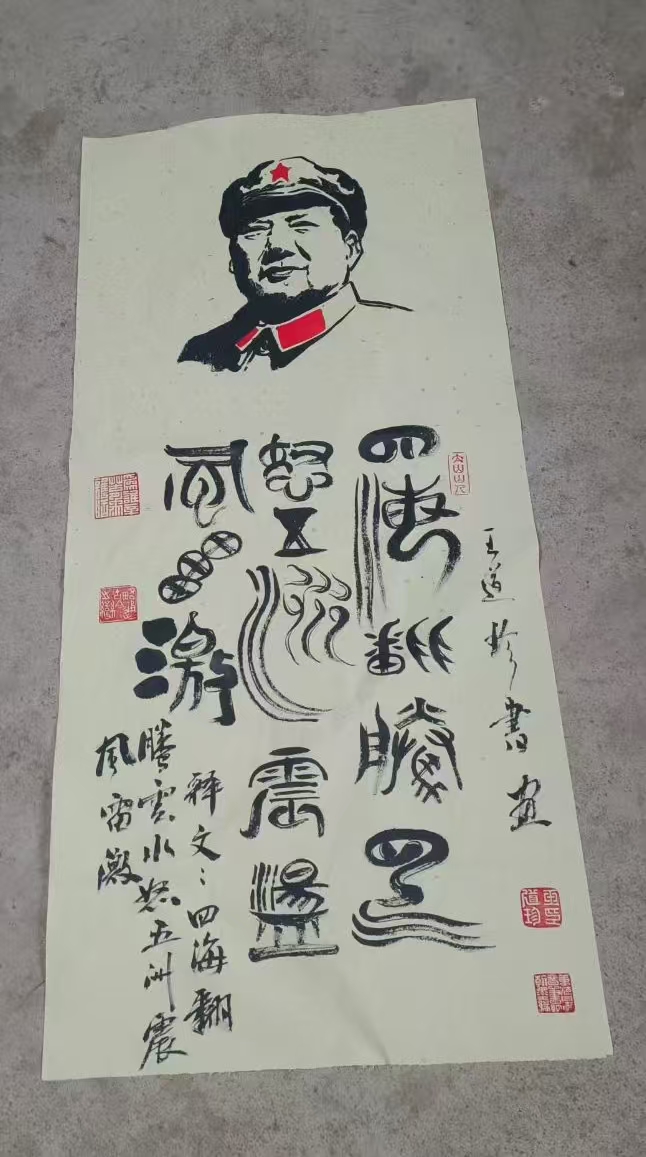 王道珍書画
四海翻騰云水
怒五洲震盪
風雷激
释文：四海翻
騰雲水怒五洲震
風雷激
王印道珍